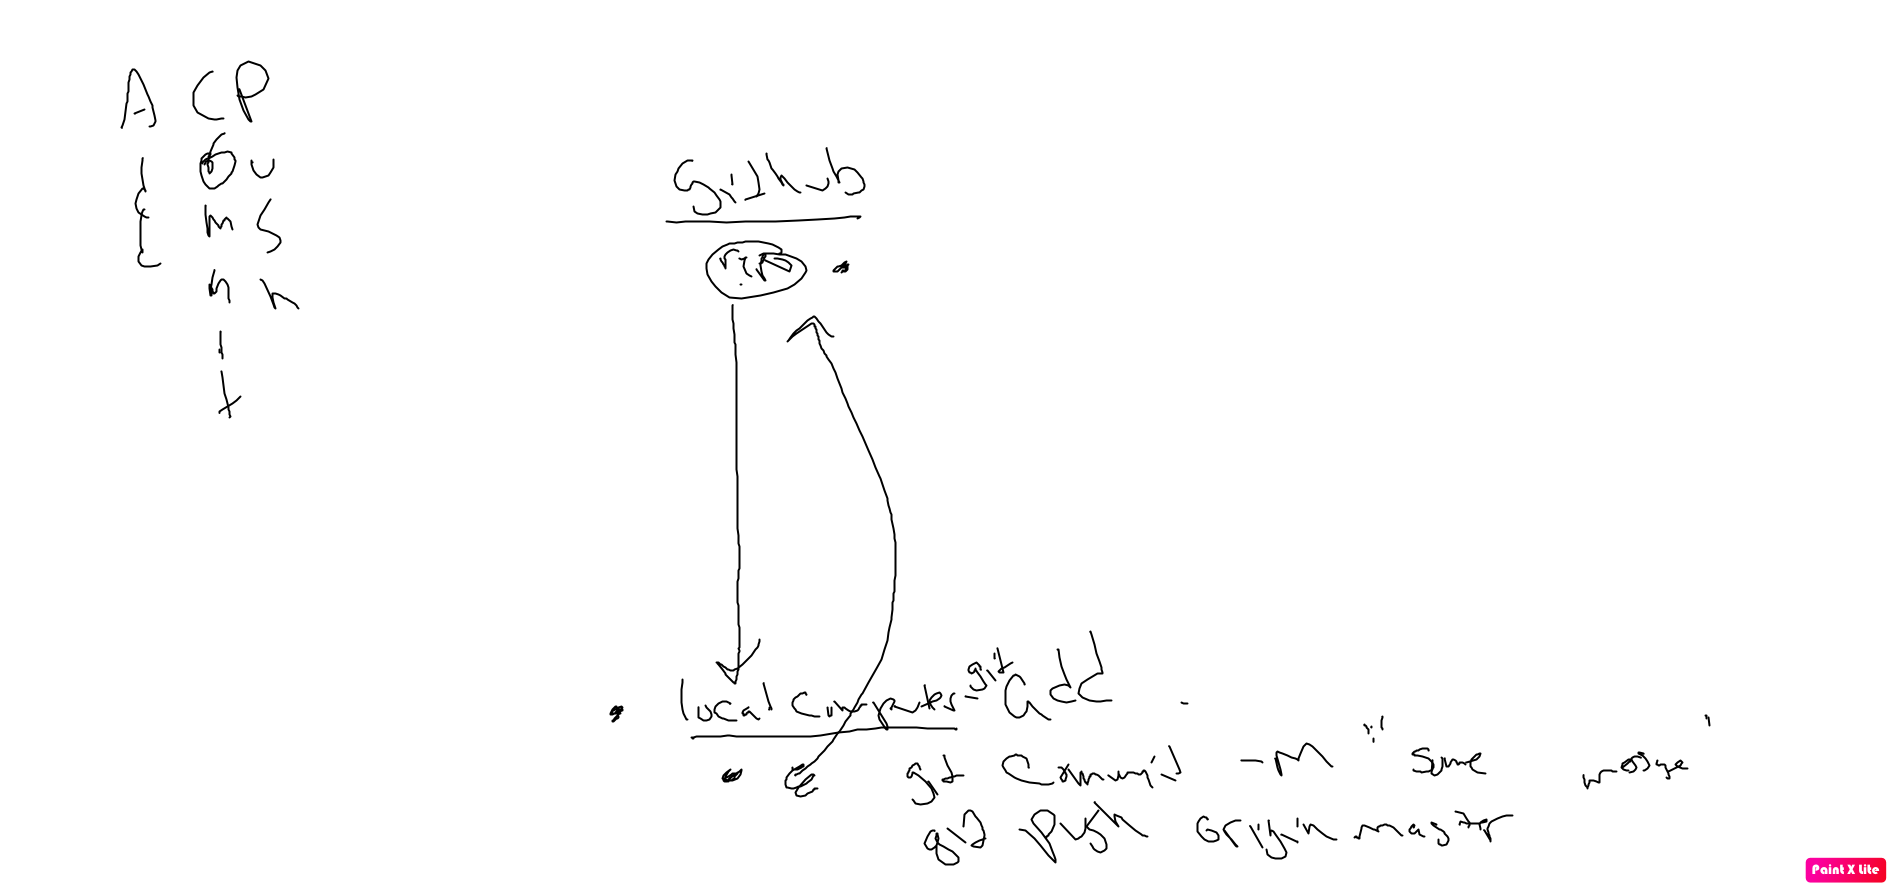 A CP
o u
m s
m h
i
t
Github
local Computer - git Add .
git Commit -M "some message"
git push origin master
Paint X Lite